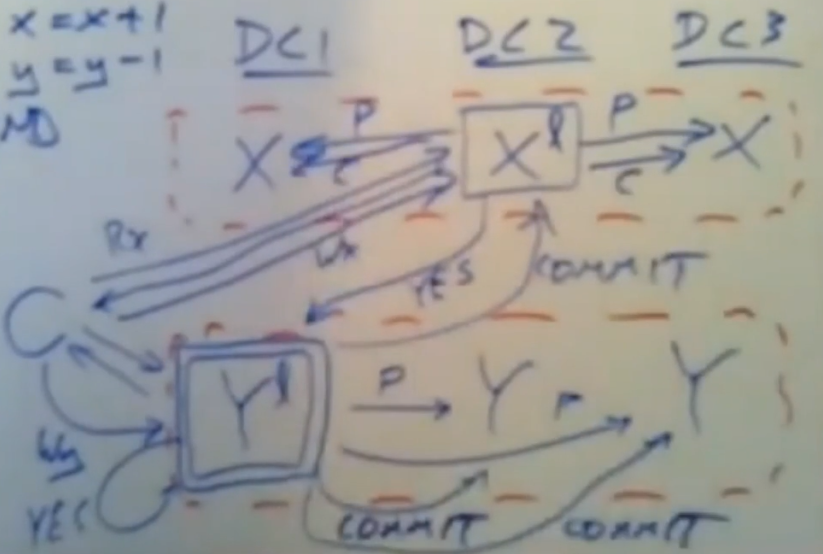 x = x+1 DC1 DC2 DC3
y = y-1
P P
X X^l X
C C
Rx Wx
YES COMMIT
C
Y^l P Y P Y
Wy
YES COMMIT COMMIT